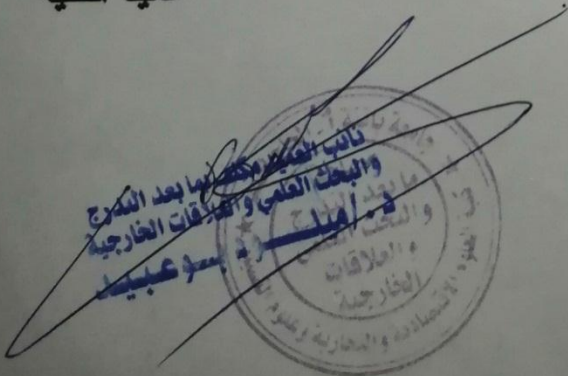 نائب العميد مكلف بما بعد التدرج
والبحث العلمي والعلاقات الخارجية
د. ميلود بوعبيد
جامعة باتنة
ما بعد التدرج
والبحث العلمي
والعلاقات
الخارجية
الاقتصادية والتجارية وعلوم